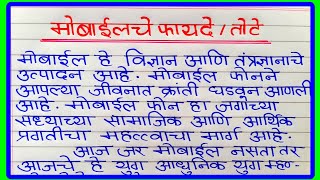 मोबाईलचे फायदे / तोटे
मोबाईल हे विज्ञान आणि तंत्रज्ञानाचे
उत्पादन आहे. मोबाईल फोनने
आपल्या जीवनात क्रांती घडवून आणली
आहे. मोबाईल फोन हा जगाच्या
सध्याच्या सामाजिक आणि आर्थिक
प्रगतीचा महत्त्वाचा मार्ग आहे.
आज जर मोबाईल नसता तर
आजचे हे युग आधुनिक युग म्हण-